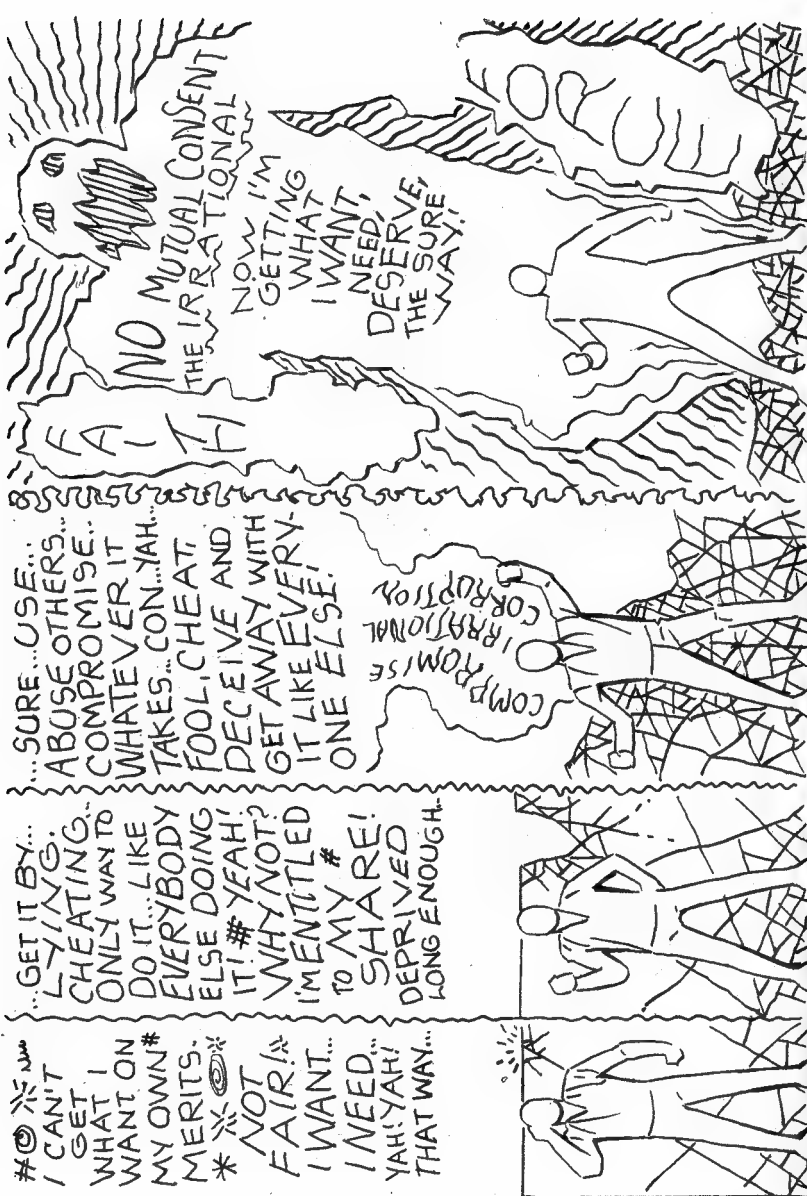 #@
I CAN'T
GET
WHAT I
WANT ON
MY OWN#
MERITS.
*
NOT
FAIR!
I WANT...
I NEED...
YAH! YAH!
THAT WAY...
...GET IT BY...
LYING.
CHEATING..
ONLY WAY TO
DO IT...LIKE
EVERYBODY
ELSE DOING
IT! # YEAH!
WHY NOT?
I'M ENTITLED
TO MY #
SHARE!
DEPRIVED
LONG ENOUGH..
...SURE...USE...
ABUSE OTHERS...
COMPROMISE..
WHATEVER IT
TAKES...CON...YAH...
FOOL, CHEAT,
DECEIVE AND
GET AWAY WITH
IT LIKE EVERY-
ONE ELSE!
COMPROMISE
IRRATIONAL
CORRUPTION
FAITH
NO MUTUAL CONSENT
THE IRRATIONAL
NOW I'M
GETTING
WHAT
I WANT,
NEED,
DESERVE,
THE SURE
WAY!
FORCE